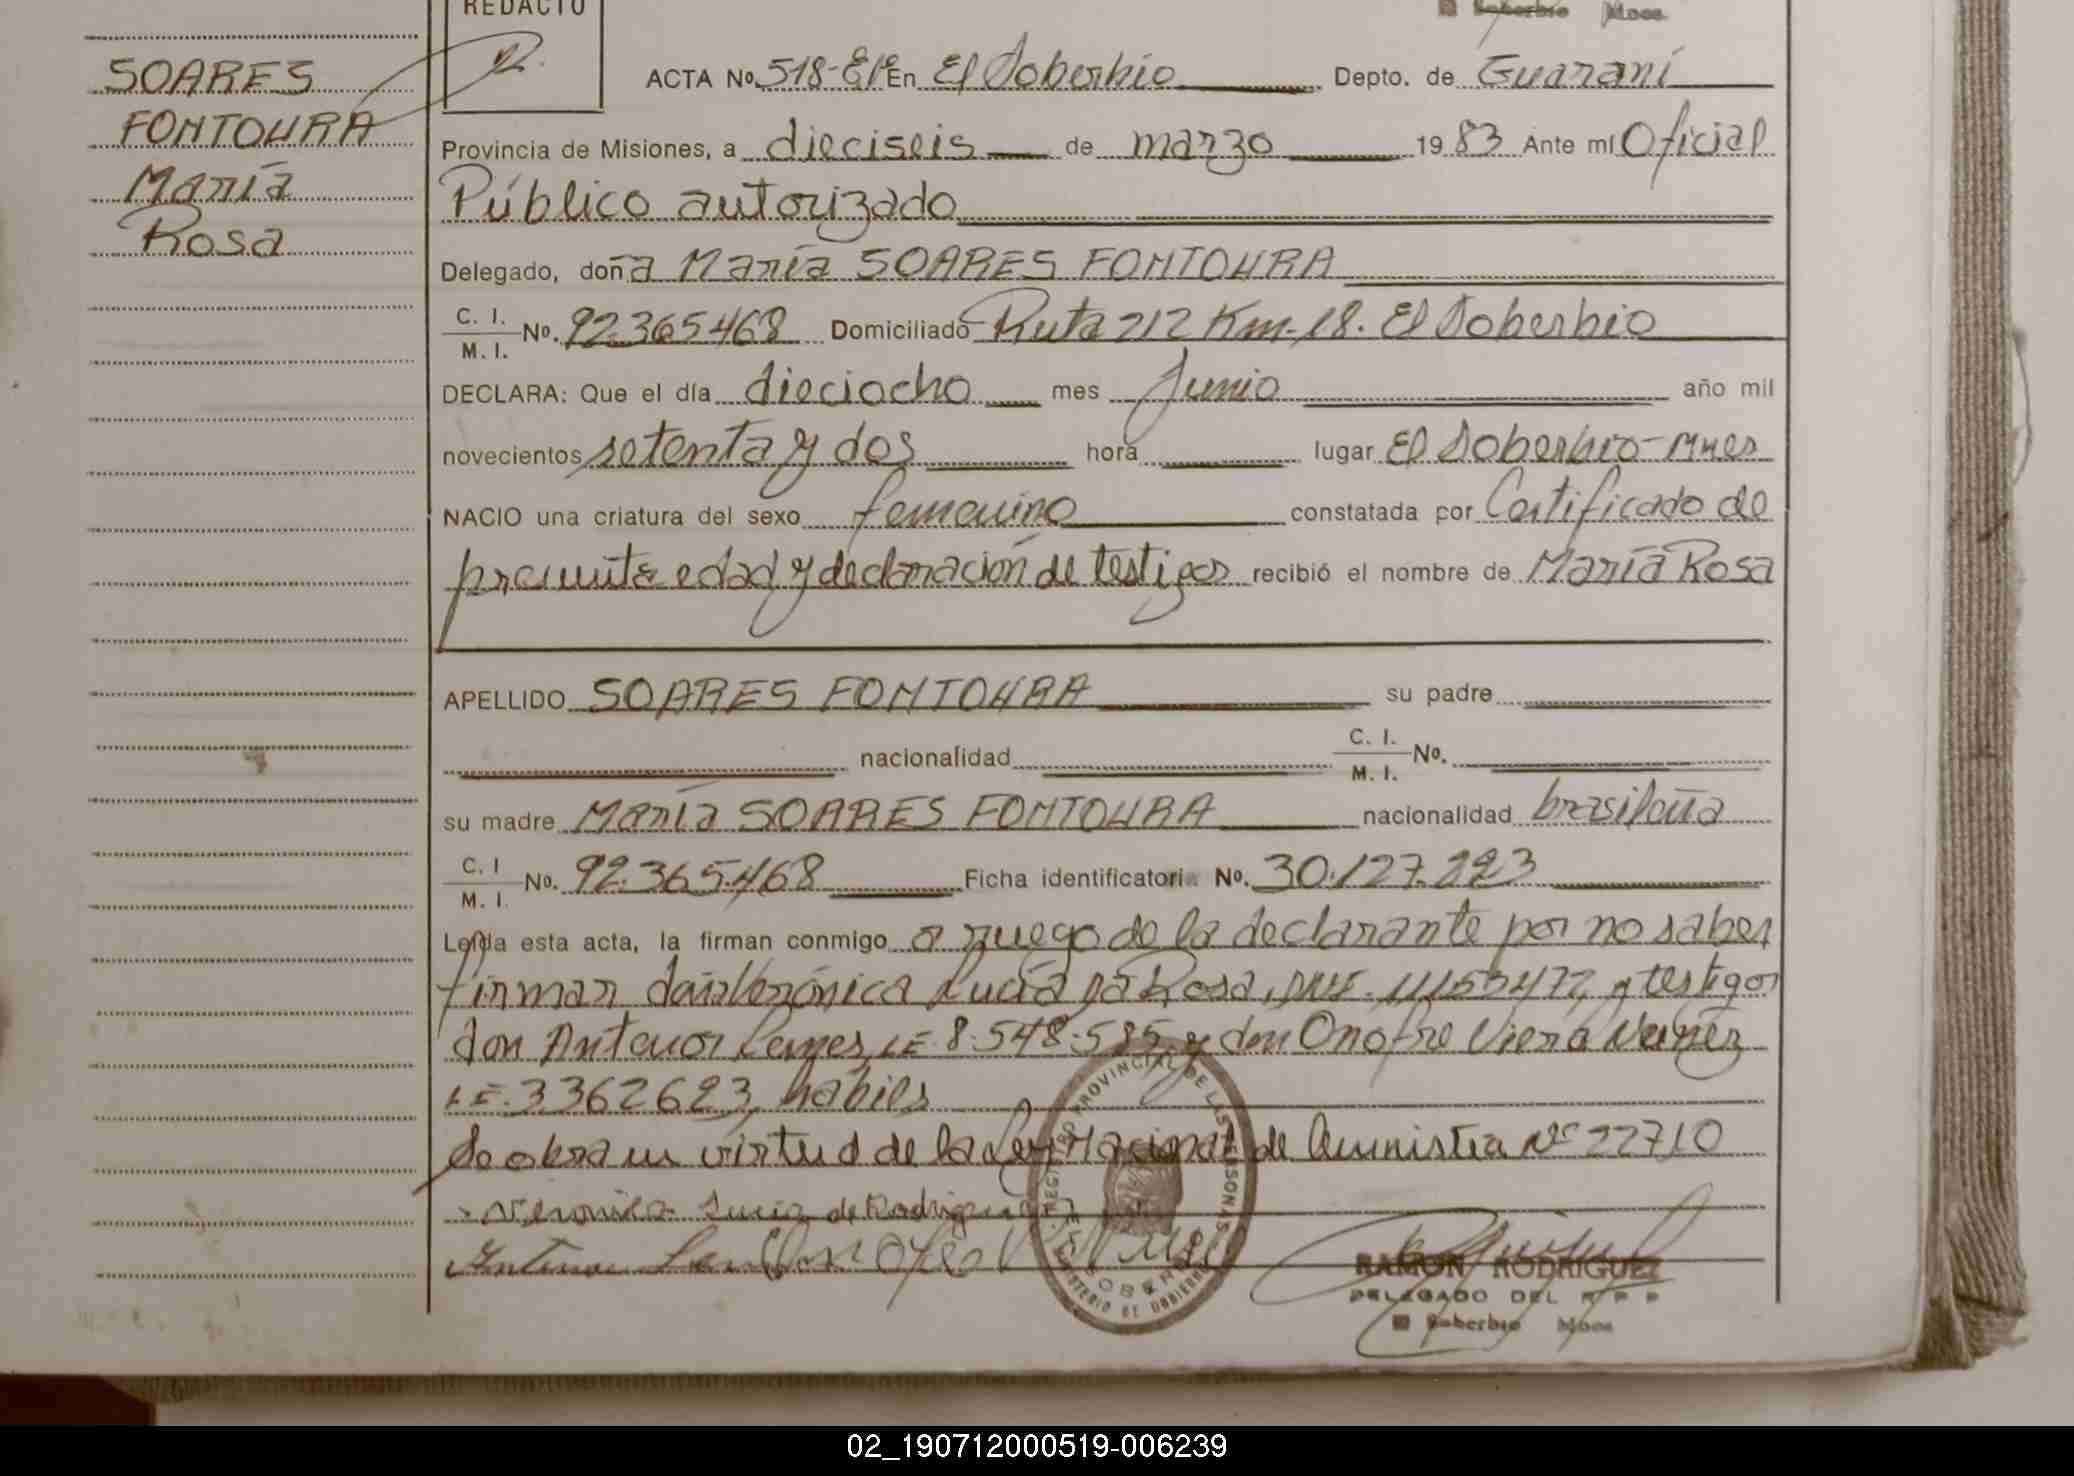 REDACTO
Soberbio Mnes.
SOARES
FONTOURA
María
Rosa
ACTA No. 518- En El Soberbio Depto. de Guaraní
Provincia de Misiones, a dieciseis de marzo 1983 Ante mí Oficial
Público autorizado
Delegado, doña María SOARES FONTOURA
C. I.
M. I. No. 92.365.468 Domiciliado Ruta 212 Km-18. El Soberbio
DECLARA: Que el día dieciocho mes Junio año mil
novecientos setenta y dos hora lugar El Soberbio-Mnes
NACIO una criatura del sexo femenino constatada por Certificado de
presunta edad y declaración de testigos recibió el nombre de María Rosa
APELLIDO SOARES FONTOURA su padre
nacionalidad C. I.
M. I. No.
su madre María SOARES FONTOURA nacionalidad brasileña
C. I
M. I. No. 92.365.468 Ficha identificatoria No. 30.127.223
Leída esta acta, la firman conmigo a ruego de la declarante por no saber
firmar doña Verónica Lucía Da Rosa, DNI. 11155477, y testigos
don Antenor Lemes, LE 8.548.585 y don Onofre Viera Nuñez
LE. 3362623, hábiles
Se obra en virtud de la Ley Nacional de Amnistia Nº 22710
Veronica Lucia de Rodriguez
Antenor
REGISTRO PROVINCIAL DE LAS PERSONAS
MINISTERIO DE GOBIERNO
RAMON RODRIGUEZ
DELEGADO DEL R P P
Soberbio Mnes
02_190712000519-006239